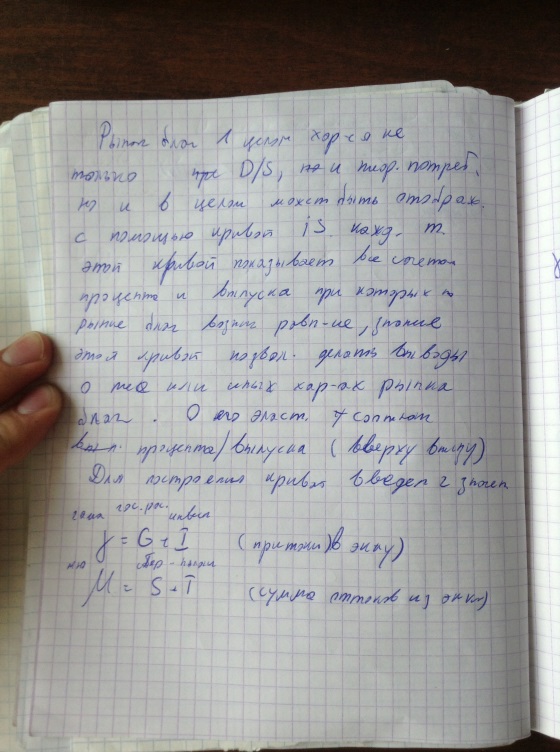 Рынок благ в целом хар-ся не
только D/S, но и теор. потреб.
но и в целом может быть отображ.
с помощью кривой iS. кажд. т.
этой кривой показывает все сочетан
процента и выпуска при которых на
рынке благ возник равн-ие, знание
этой кривой позвол. делать выводы
о тех или иных хар-ах рынка
благ. О его эласт.
процента/выпуска (вверху внизу)
Для построения кривой введем 2 значен
гама гос.рас. инвест
γ = G + I (притоки) в эку)
мю сбер - налоги
M = S + T (сумма оттоков из экки)